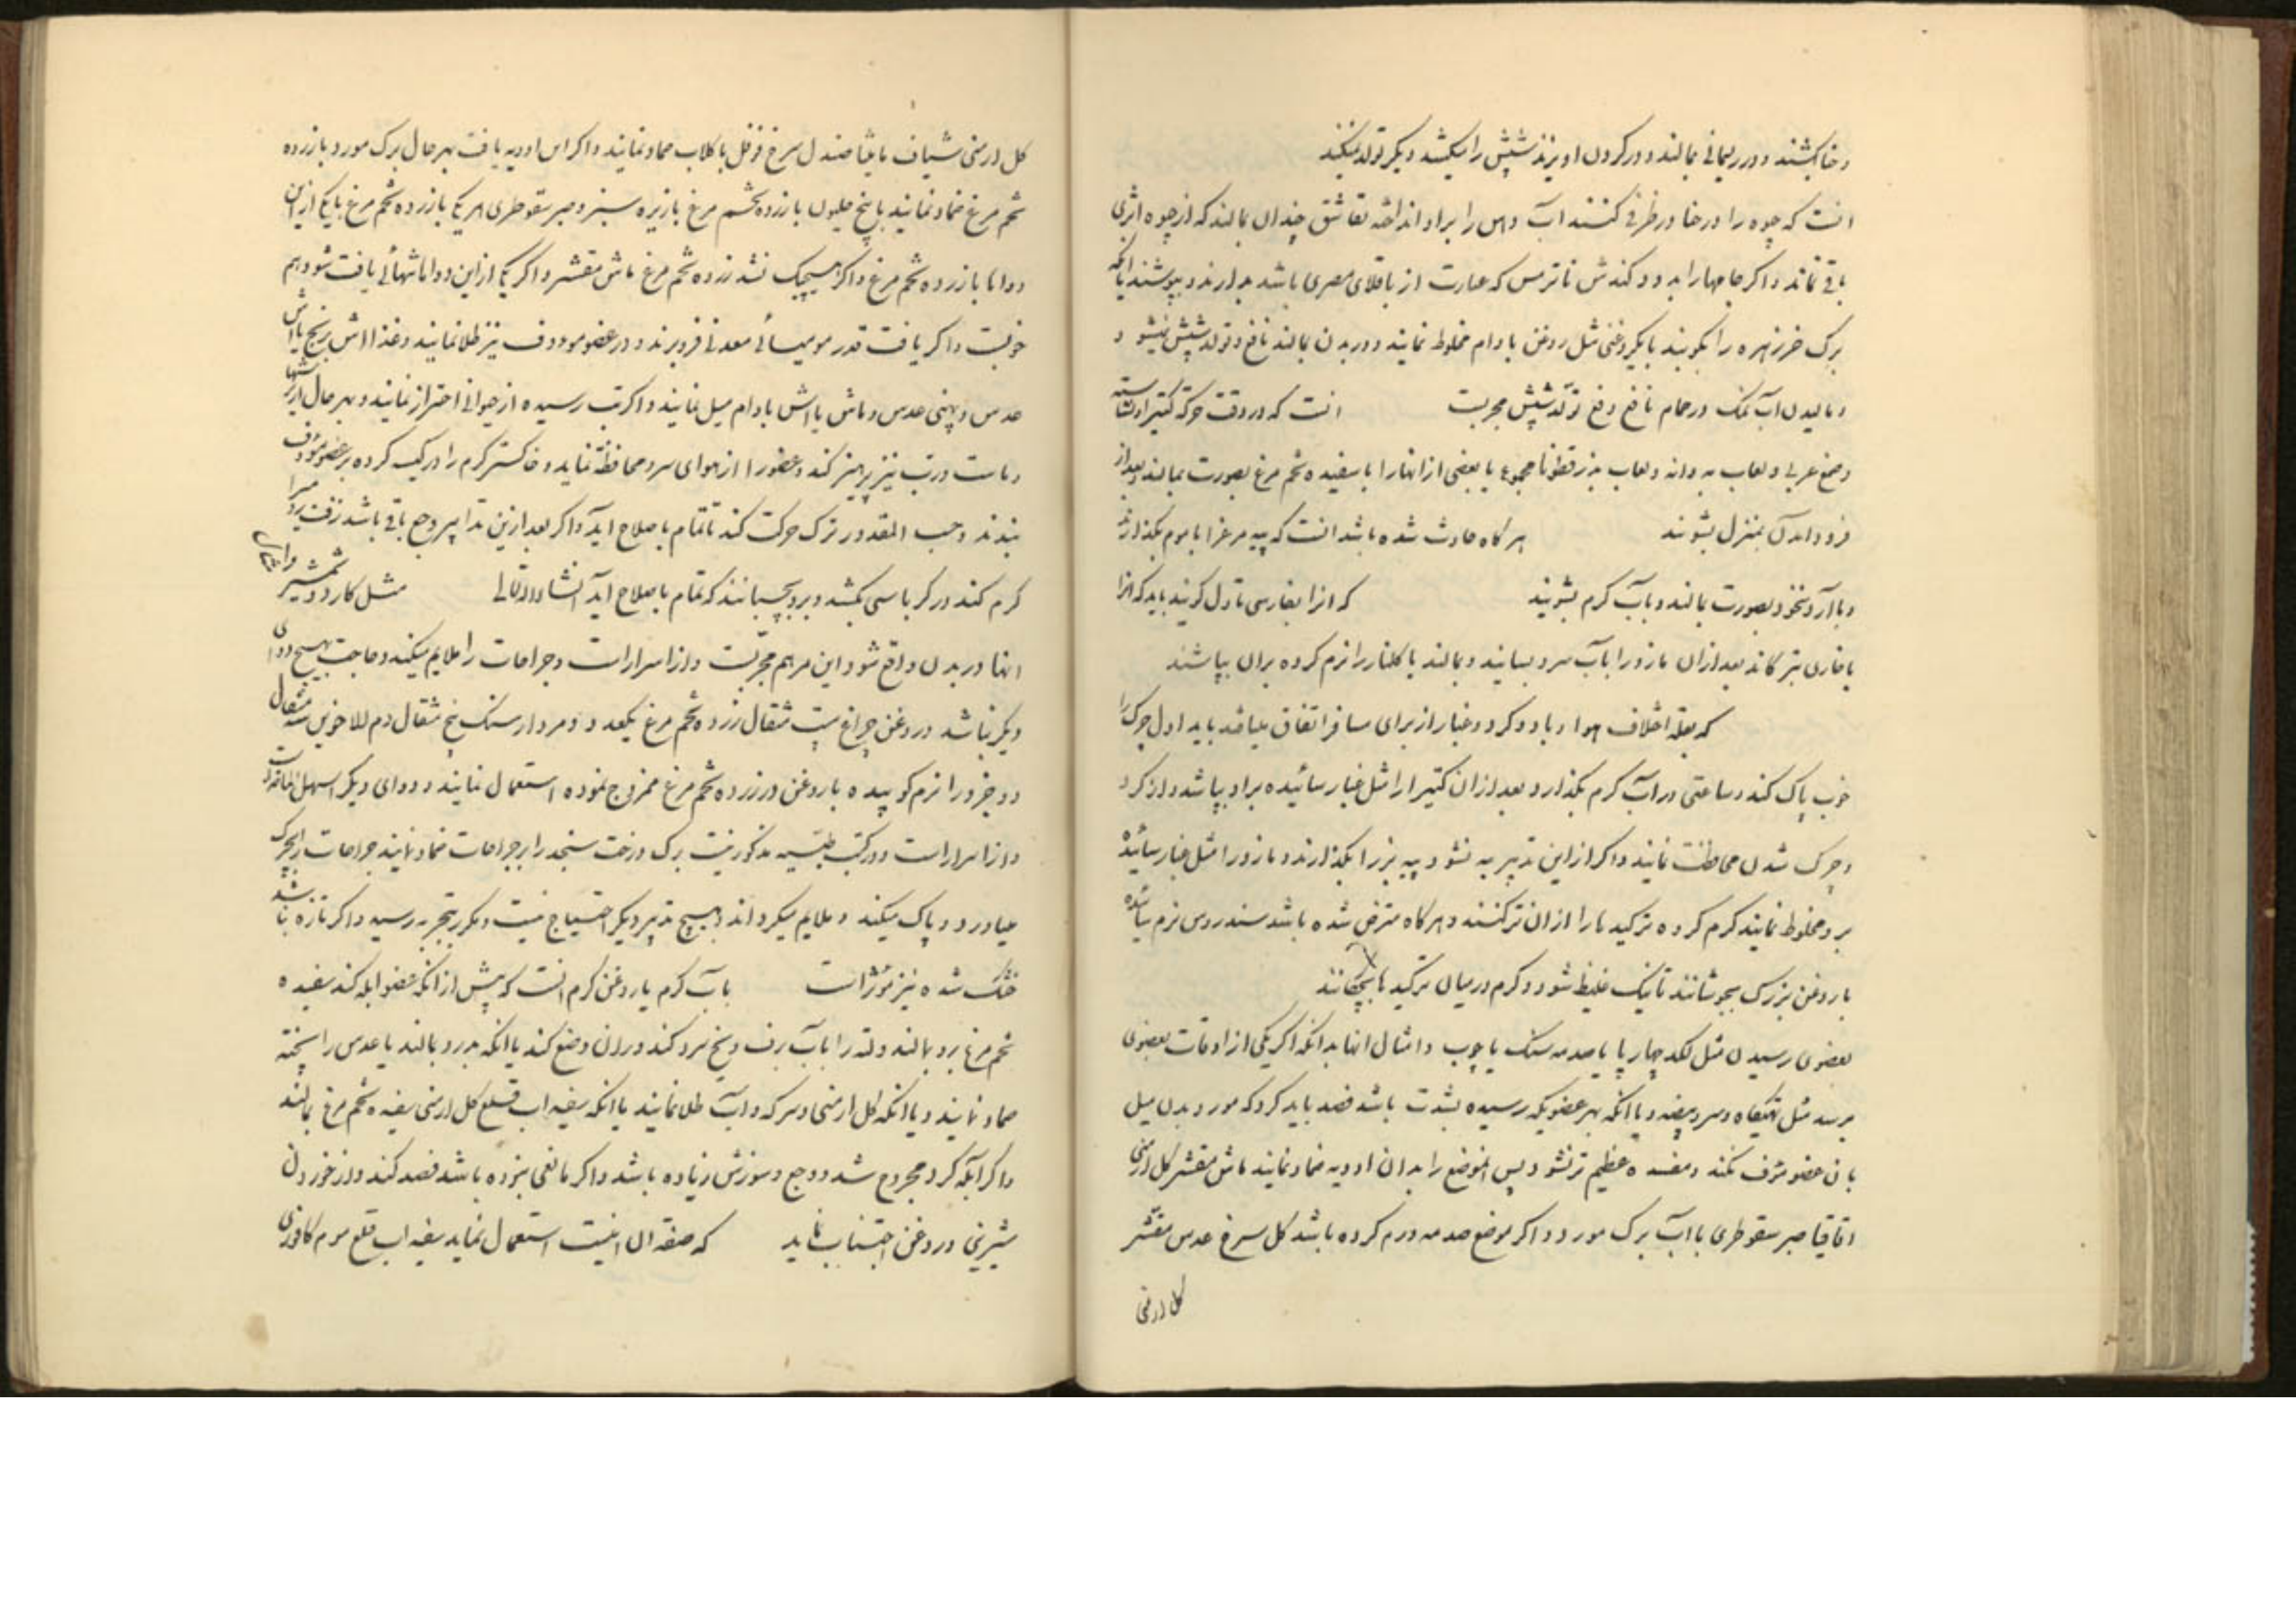 و حنا بکشند و در ریمانی بمالند و در کردن اویزند شپش را میکشد و دیکر تولد نمیکند
انست که جیوه را در حنا در ظرفی کنند آب دهن را بر او انداخته چندان بمالند که از جیوه اثری
باقی نماند و اکر جامها را بدود کندش یا ترمس که عبارت از باقلای مصری باشد بدارند و بپوشند یا انکه
برک خرزهره را بکوبند با یکروغنی مثل روغن بادام مخلوط نمایند و در بدن بمالند نافع و تولد شپش نمیشود
و مالیدن آب نمک در حمام نافع دفع تولد شپش مجربست انست که در وقت حرکت کتیرا و نشاسته
و صمغ عربی و لعاب به دانه و لعاب بذر قطونا مجموع یا بعضی از انها را با سفیده تخم مرغ بصورت بمالند و بعد از
فرود امدن بمنزل بشویند هر کاه حادث شده باشد انست که پیه مرغ را با موم بکذارند
و با آرد نخود بصورت بمالند و بآب کرم بشویند که انرا بفارسی تاول کویند باید که انرا
بعد از ان مازو را بآب سرد بسایند و بمالند یا کلنار را نرم کرده بران بپاشند
که بعلة اختلاف هوا و باد و کرد و غبار از برای مسافر اتفاق میافتد باید اول چرک را
خوب پاک کند و ساعتی در آب کرم بکذارد و بعد از ان کتیرا را مثل غبار سائیده بر او بپاشد و از کرد
و چرک شدن محافظت نمایند و اکر از این تدبیر به نشود پیه بز را بکذارند و مازو را مثل غبار سائیده
برو مخلوط نمایند کرم کرده ترکید ها را از ان تر کنند و هر کاه مزمن شده باشد سندروس نرم سائیده
با روغن بزرک بجوشانند تا نیک غلیظ شود و کرم در میان ترکید ها بچکانند
بعضوی رسیدن مثل لکد چهار پا یا صدمه سنک یا چوب و امثال انها بدانکه اکر یکی از اوقات بعضوی
برسد مثل تهیکاه و سر و بیضه و یا انکه بهر عضویکه رسیده بشدت باشد فصد باید کرد که مورد بدن میل
بان عضو مؤف نکند و مفسده عظیم تر نشود پس الموضع را بدان ادویه ضماد نمایند ماش مقشر کل ارمنی
اقاقیا صبر سقوطری با آب برک مورد و اکر موضع صدمه ورم کرده باشد کل سرخ عدس مقشر
کل ارمنی
کل ارمنی شیاف مامیثا صندل سرخ فوفل با کلاب ضماد نمایند و اکر این ادویه یافت بهر حال برک مورد با زرده
تخم مرغ ضماد نمایند یا بیخ با زرده تخم مرغ یا زیره سبز و صبر سقوطری هر یک با زرده تخم مرغ یا یکی از این
دواها با زرده تخم مرغ و اکر هیچیک نشد زرده تخم مرغ ماش مقشر و اکر یکی از این دواها تنها یافت شود هم
خوبست و اکر یافت قدر مومیائی معدنی فرو برند و در عضو مؤوف نیز طلا نمایند و غذا اش برنج یا اش
عدس و پهتی عدس و ماش یا اش بادام میل نمایند و اکر تب رسیده از حیوانی احتراز نمایند و بهر حال از ترشیها
و ماست و تب نیز پرهیز کند و عضو را از هوای سرد محافظة نماید و خاکستر کرم را در کیسه کرده بر عضو مؤوف
بندند و حسب المقدور ترک حرکت کند تا تمام باصلاح اید و اکر بعد از این تدابیر وجع باقی باشد زفت رومی را
کرم کند در کرباسی بکشد و برو بچسبانند که تمام باصلاح آید انشاءالله تعالی مثل کارد و شمشیر و امثال
انها در بدن واقع شود این مرهم مجربست و از اسرار است و جراحات را ملایم میکند و حاجت بهیچ دوای
دیکر نباشد و روغن چراغ بیست مثقال زرده تخم مرغ یکعدد و مردار سنک پنج مثقال دم الاخوین سه مثقال
دو جزو را نرم کوبیده با روغن و زرده تخم مرغ ممزوج نموده استعمال نمایند و دوای دیکر اسهل
و از اسرار است و در کتب طبیه مذکور نیست برک درخت سنجد را بر جراحات ضماد نمایند جراحات را بچرک
میاورد و پاک میکند و ملایم میکرداند و بهیچ تدبیر دیکر احتیاج نیست و مکرر بتجربه رسیده و اکر تازه نباشد
خشک شده نیز مؤثر است بآب کرم یا روغن کرم انست که پیش از انکه عضو ابله کند سفیده
تخم مرغ برو بمالند و لته را بآب برف و یخ سرد کند و بران وضع کند یا انکه برو بمالند یا عدس را پخته
ضماد نمایند و یا انکه کل ارمنی و سرکه و آب طلا نمایند یا انکه سفیداب قلع کل ارمنی سفیده تخم مرغ بمالند
و اکر آبله کرد و مجروح شد و وجع و سوزش زیاده باشد و اکر مانعی نبوده باشد فصد کند و از خوردن
شیرینی و روغن اجتناب نماید که صفة ان اینست استعمال نماید سفیداب قلع موم کافوری